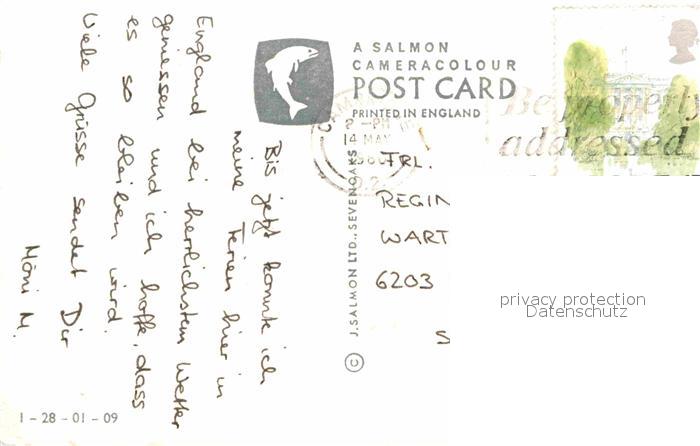 A SALMON
CAMERACOLOUR
POST CARD
PRINTED IN ENGLAND
Be properly
addressed
2 -PM
14 MAY
198
Bis jetzt konnte ich
meine Ferien hier in
England bei herrlichstem Wetter
geniessen und ich hoffe, dass
es so bleiben wird.
Viele Grüsse sendet Dir
Möni M.
FRL.
REGIN
WART
6203
S
© J.SALMON LTD., SEVENOAKS
privacy protection
Datenschutz
1 - 28 - 01 - 09